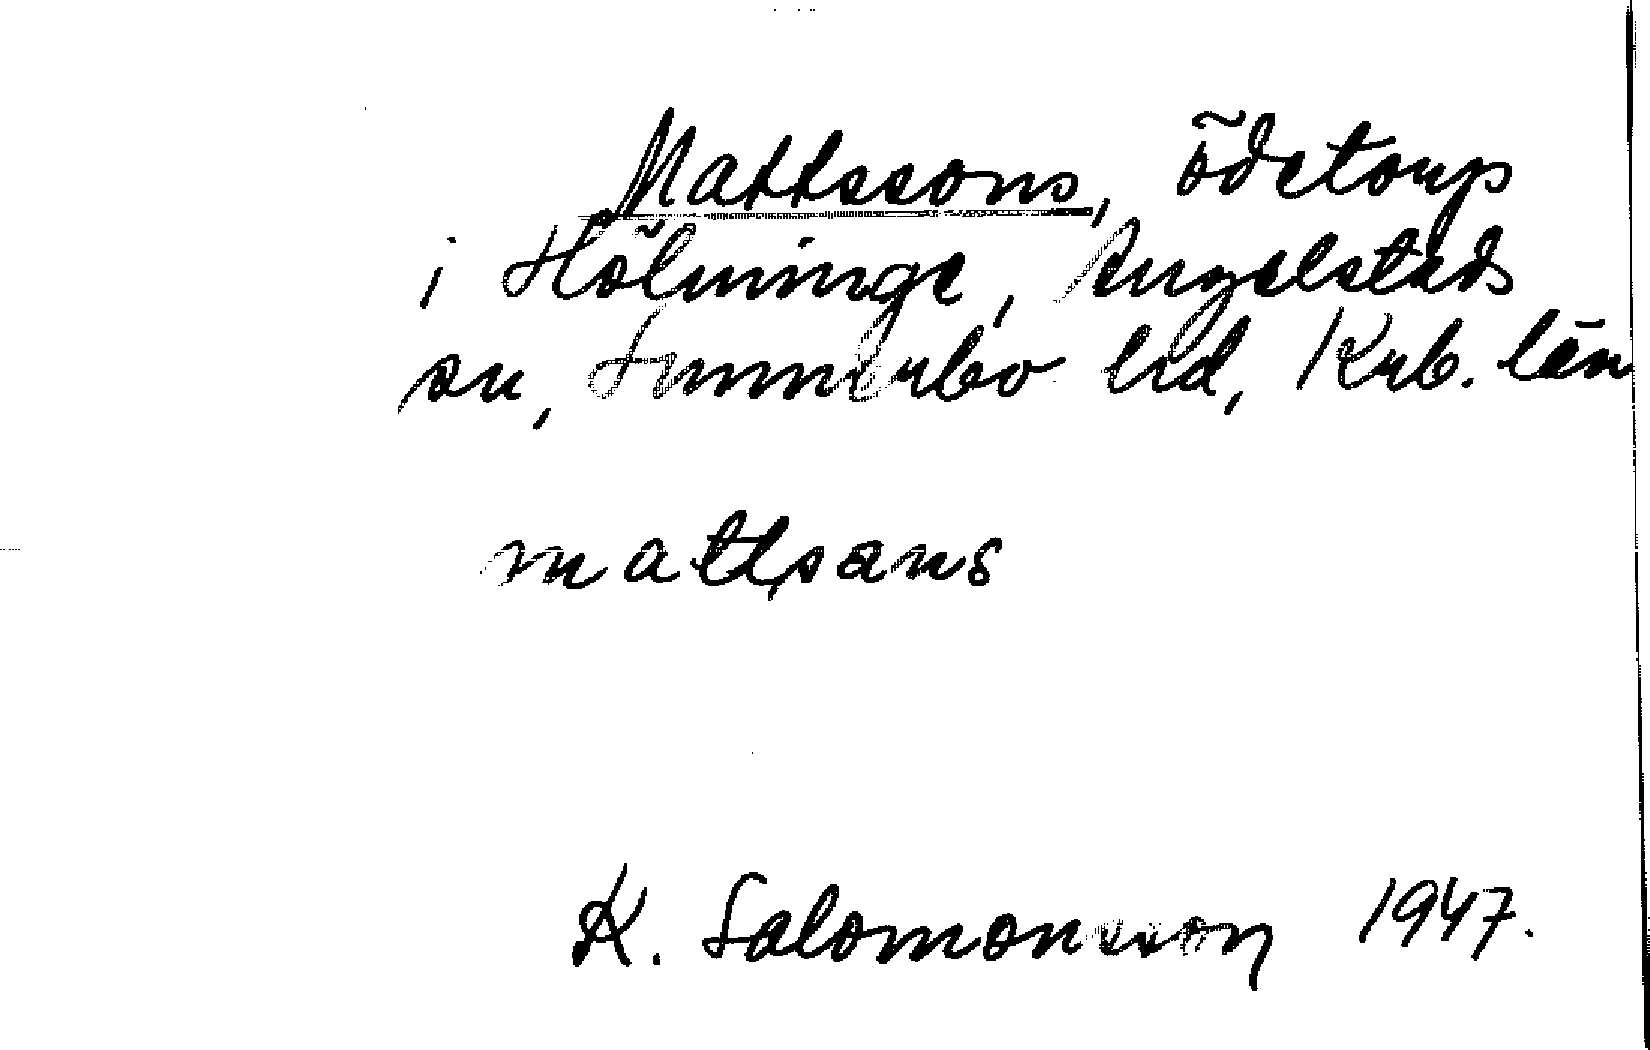 Mattssons, ödetorp
i Hölminge, Angelstads
sn, Sunnerbo hd, Krb. län
mattsans
K. Salomonsson 1947.